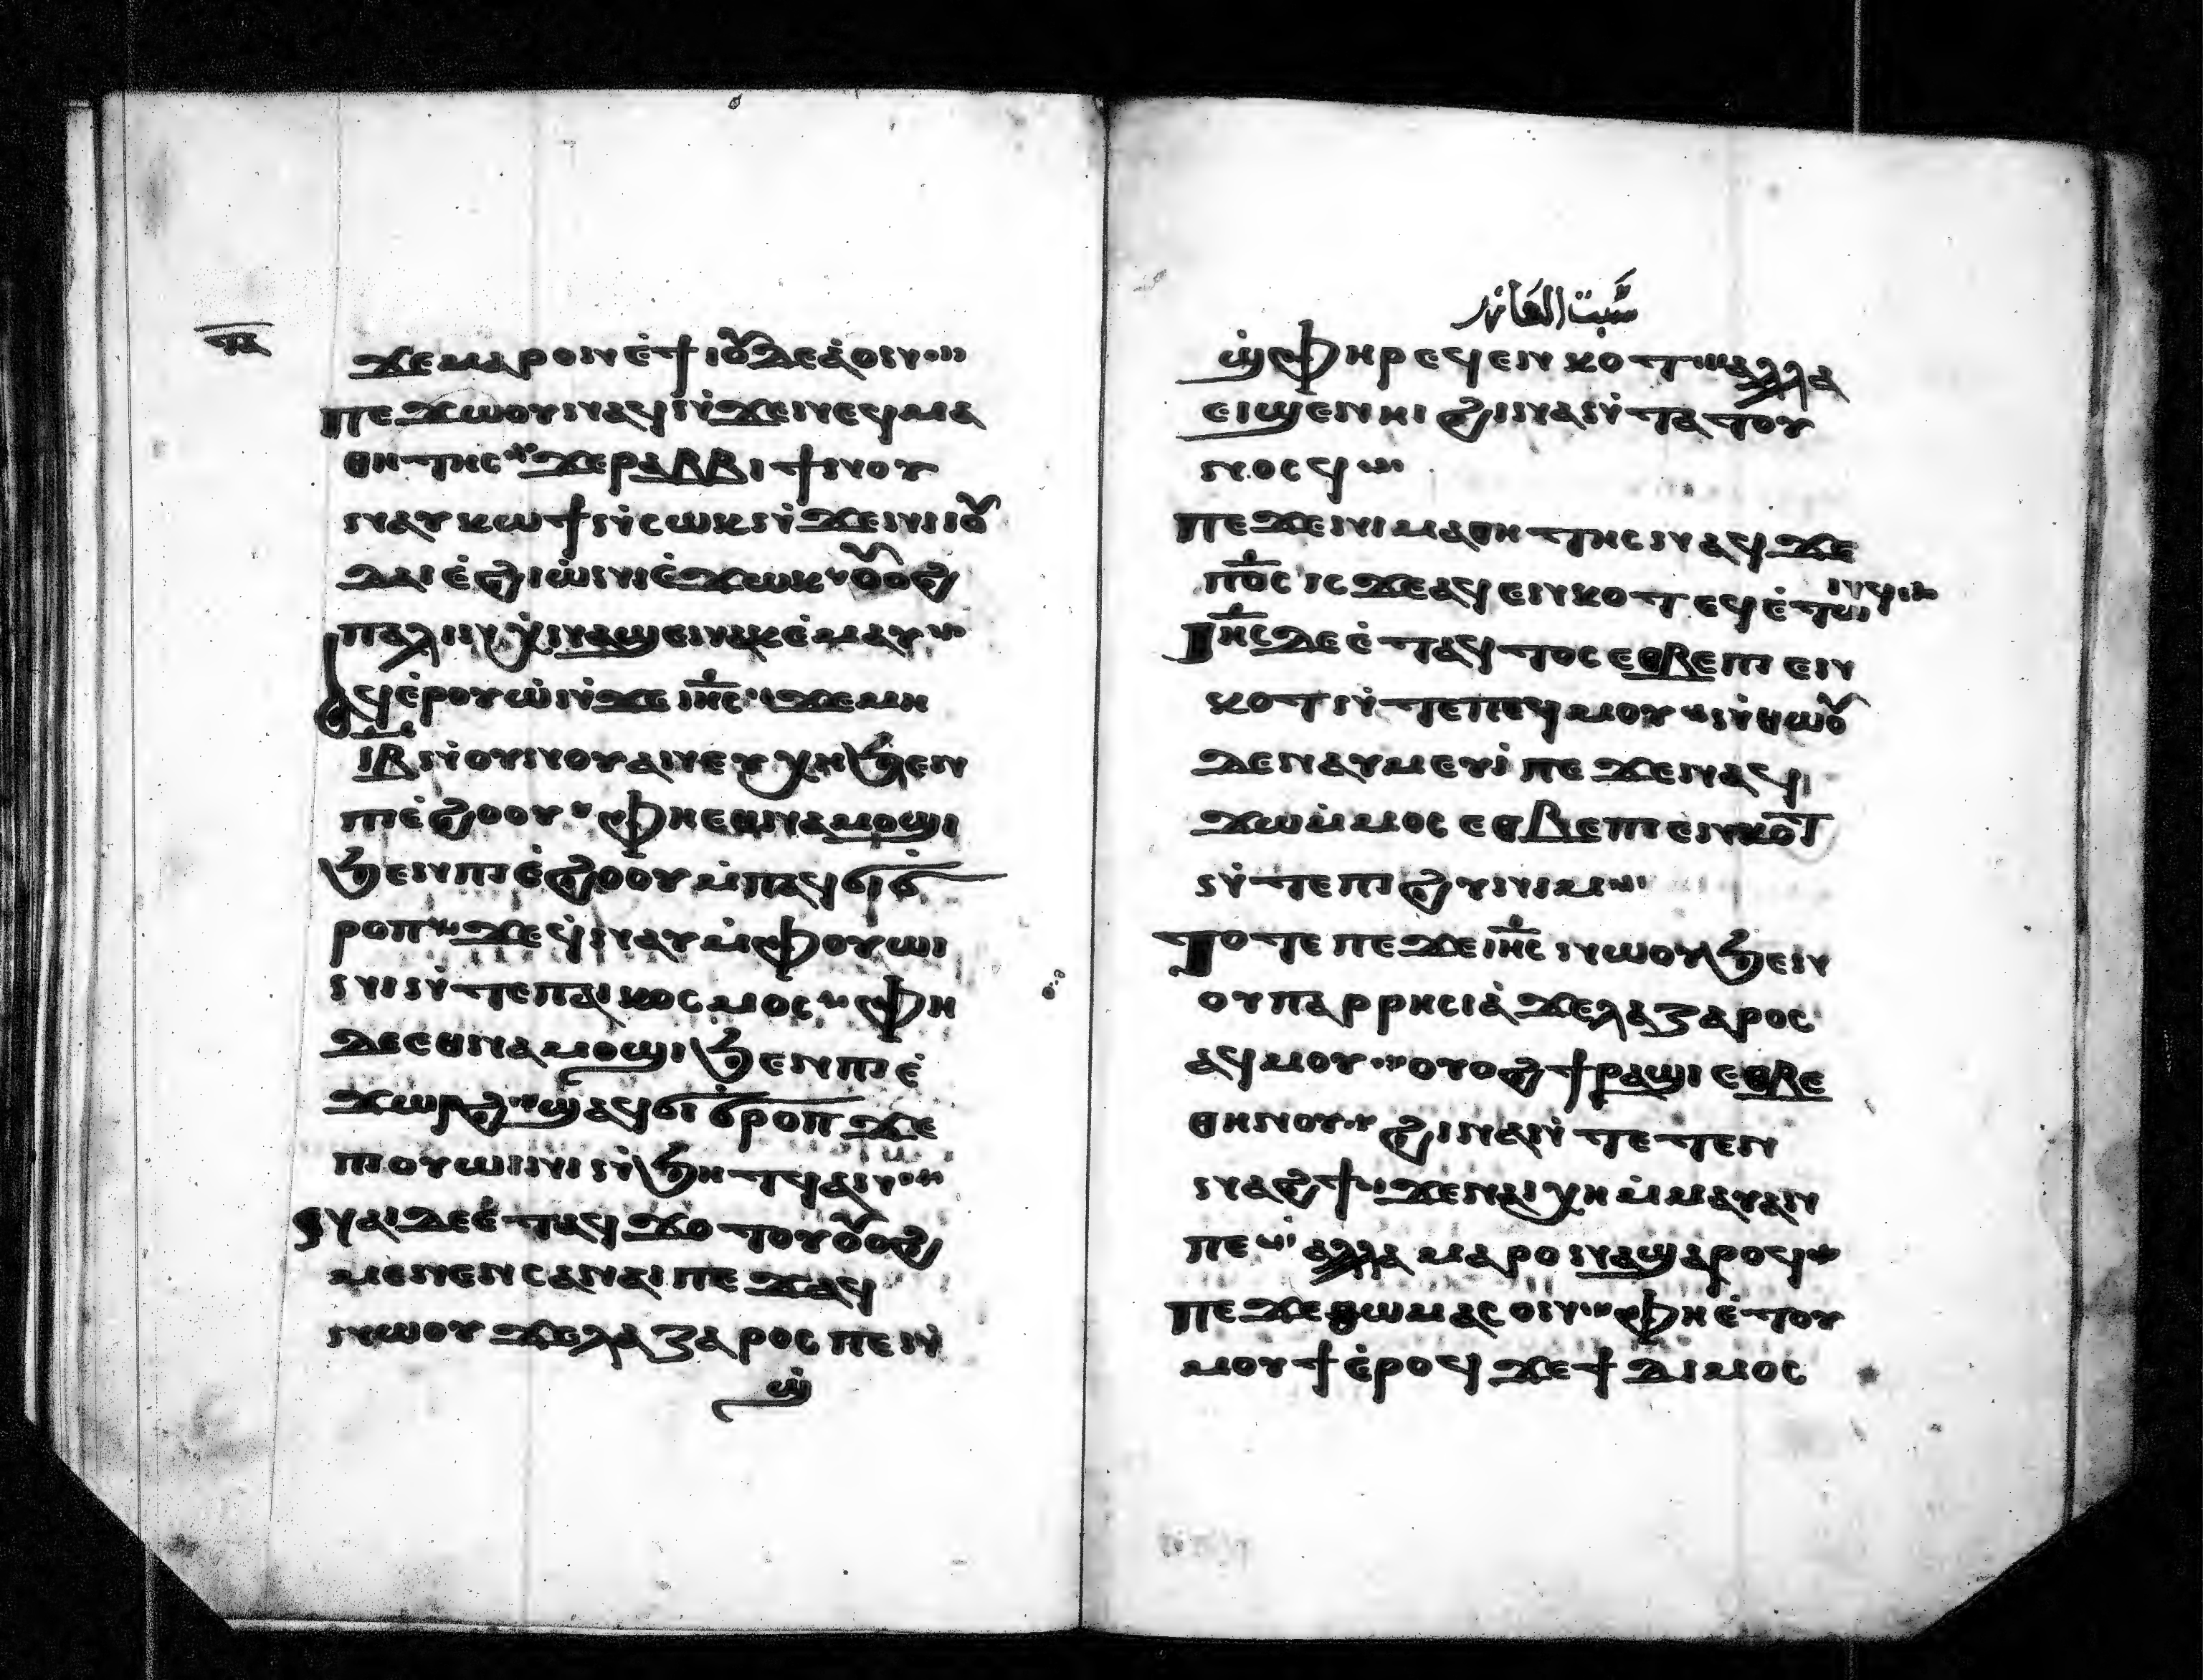 ⲡⲁ
ϫⲉⲙⲁⲣⲟⲛ ⲉ̀ϯⲓⲟⲩⲇⲉⲁ̀ ⲟⲛ
ⲡⲉϫⲱⲟⲩ ⲛⲁϥ ⲛ̀ϫⲉⲛⲉϥⲙⲁ
ⲑⲏⲧⲏⲥ ϫⲉⲣⲁⲃⲃⲓ ϯⲛⲟⲩ
ⲛⲁⲩⲕⲱϯ ⲛ̀ⲥⲱⲕ ⲛ̀ϫⲉⲛⲓⲓⲟⲩ
ⲇⲁⲓ ⲉ̀ϩⲓⲱ̀ⲛⲓ ⲉ̀ϫⲱⲕ ⲟⲩⲟϩ
ⲡⲁⲗⲓⲛ ⲭⲛⲁϣⲉⲛⲁⲕ ⲉ̀ⲙⲁⲩ
ⲁϥⲉ̀ⲣⲟⲩⲱ̀ ⲛ̀ϫⲉ ⲓⲏⲥ ϫⲉⲙⲏ
ⲓⲃ ⲛ̀ⲟⲩⲛⲟⲩ ⲁⲛⲉⲧⲭⲏ ϧⲉⲛ
ⲡⲓⲉ̀ϩⲟⲟⲩ ⲫⲏ ⲉⲑⲛⲁⲙⲟϣⲓ
ϧⲉⲛⲡⲓⲉ̀ϩⲟⲟⲩ ⲙ̀ⲡⲁϥϭⲓϭ
ⲣⲟⲡ ϫⲉϥⲛⲁⲩ ⲙ̀ⲫⲟⲩⲱⲓ
ⲛⲓ ⲛ̀ⲧⲉⲡⲁⲓⲕⲟⲥⲙⲟⲥ ⲫⲏ
ⲇⲉ ⲉⲑⲛⲁⲙⲟϣⲓ ϧⲉⲛⲡⲓⲉ̀
ϫⲱⲣϩ ϣⲁϥϭⲓϭⲣⲟⲡ ϫⲉ
ⲡⲓⲟⲩⲱⲓⲛⲓ ⲛ̀ϧⲏⲧϥ ⲁⲛ
ⲛⲁⲓ ⲇⲉ ⲉ̀ⲧⲁϥϫⲟⲧⲟⲩ ⲟⲩⲟϩ
ⲙⲉⲛⲉⲛⲥⲁⲛⲁⲓ ⲡⲉϫⲁϥ
ⲛⲱⲟⲩ ϫⲉⲗⲁⲍⲁⲣⲟⲥ ⲡⲉⲛ
ϣ̀
سبت العازر
ϣ̀ⲫⲏⲣ ⲉϥⲉⲛⲕⲟⲧ ⲁⲗⲗⲁ
ⲉⲓϣⲉⲛⲏⲓ ϩⲓⲛⲁ ⲛ̀ⲧⲁⲧⲟⲩ
ⲛⲟⲥϥ
ⲡⲉϫⲉⲛⲓⲙⲁⲑⲏⲧⲏⲥ ⲛⲁϥ ϫⲉ
ⲡⲟ̅ⲥ ⲓⲥϫⲉ ⲁϥⲉⲛⲕⲟⲧ ⲉϥⲉ̀ⲧⲱ
ⲛϥ
ⲓⲏⲥ ⲇⲉ ⲉ̀ⲧⲁϥϫⲟⲥ ⲉⲑⲃⲉ ⲡⲓⲉⲛ
ⲕⲟⲧ ⲛ̀ⲧⲉⲡⲉϥⲙⲟⲩ ⲛ̀ⲑⲱⲟⲩ
ⲇⲉ ⲛⲁⲩⲙⲉⲩⲓ̀ ⲡⲉ ϫⲉⲛⲁϥ
ϫⲱⲙ̀ⲙⲟⲥ ⲉⲑⲃⲉ ⲡⲓⲉⲛⲕⲟⲧ
ⲛ̀ⲧⲉⲡⲓϩⲩⲛⲓⲙ
ⲧⲟⲧⲉ ⲡⲉϫⲉ ⲓⲏⲥ ⲛⲱⲟⲩ ϧⲉⲛ
ⲟⲩⲡⲁⲣⲣⲏⲥⲓⲁ̀ ϫⲉⲗⲁⲍⲁⲣⲟⲥ
ⲁϥⲙⲟⲩ ⲟⲩⲟϩ ϯⲣⲁϣⲓ ⲉⲑⲃⲉ
ⲑⲏⲛⲟⲩ ϩⲓⲛⲁ ⲛ̀ⲧⲉⲧⲉⲛ
ⲛⲁϩϯ ϫⲉⲛⲁⲓⲭⲏ ⲙ̀ⲙⲁⲩ ⲁⲛ
ⲡⲉ ⲁⲗⲗⲁ ⲙⲁⲣⲟⲛ ϣⲁⲣⲟϥ
ⲡⲉϫⲉ ⲑⲱⲙⲁⲥ ⲟⲛ ⲫⲏ ⲉ̀ⲧⲟⲩ
ⲙⲟⲩϯ ⲉ̀ⲣⲟϥ ϫⲉϯⲇⲓⲙⲟⲥ